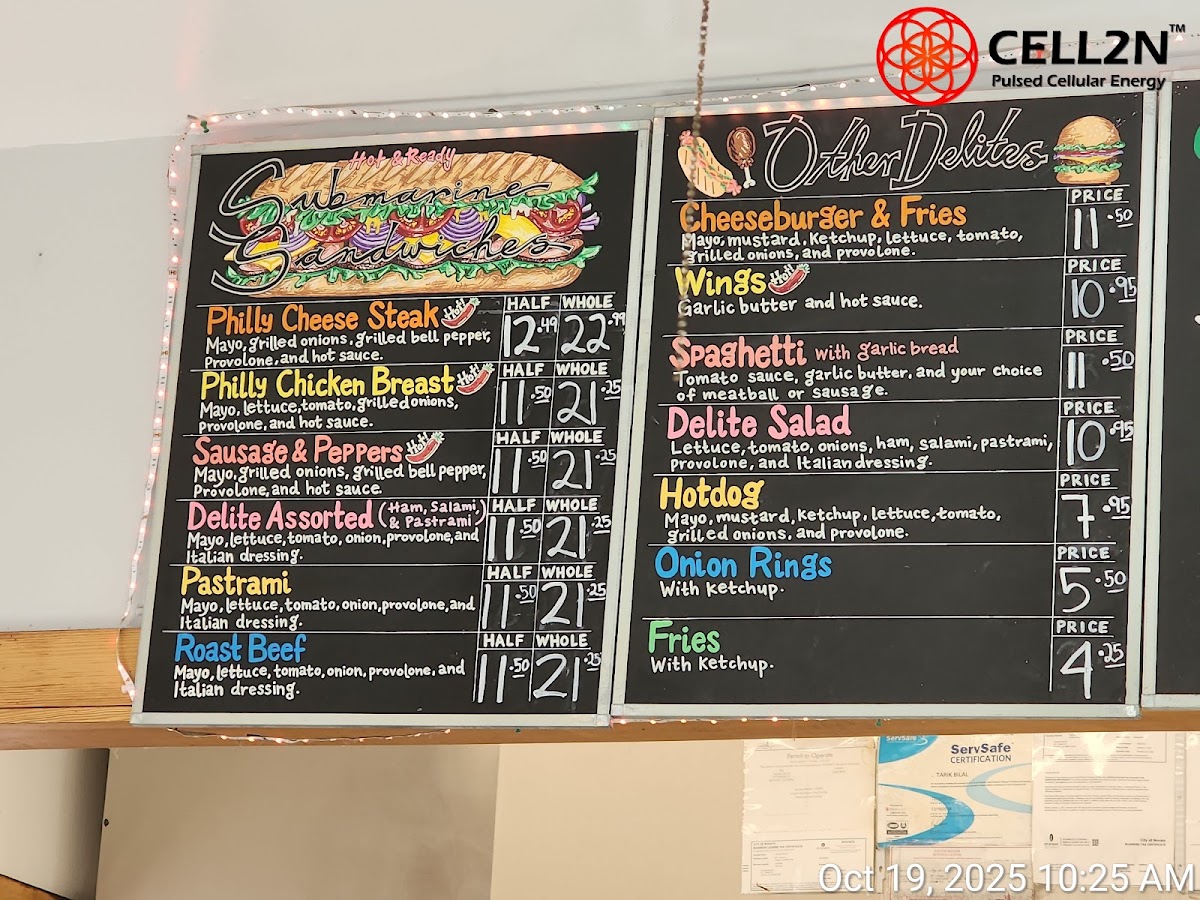 CELL2N™
Pulsed Cellular Energy
Hot & Ready
Submarine
Sandwiches
HALF WHOLE
Philly Cheese Steak Hot! 12.49 22.99
Mayo, grilled onions, grilled bell pepper,
Provolone, and hot sauce.
HALF WHOLE
Philly Chicken Breast Hot! 11.50 21.25
Mayo, lettuce, tomato, grilled onions,
Provolone, and hot sauce.
HALF WHOLE
Sausage & Peppers Hot! 11.50 21.25
Mayo, grilled onions, grilled bell pepper,
Provolone, and hot sauce.
HALF WHOLE
Delite Assorted (Ham, Salami, & Pastrami) 11.50 21.25
Mayo, lettuce, tomato, onion, provolone, and
Italian dressing.
HALF WHOLE
Pastrami 11.50 21.25
Mayo, lettuce, tomato, onion, provolone, and
Italian dressing.
HALF WHOLE
Roast Beef 11.50 21.25
Mayo, lettuce, tomato, onion, provolone, and
Italian dressing.
Other Delites
PRICE
Cheeseburger & Fries 11.50
Mayo, mustard, Ketchup, lettuce, tomato,
grilled onions, and provolone.
PRICE
Wings Hot! 10.95
Garlic butter and hot sauce.
PRICE
Spaghetti with garlic bread 11.50
Tomato sauce, garlic butter, and your choice
of meatball or sausage.
PRICE
Delite Salad 10.95
Lettuce, tomato, onions, ham, salami, pastrami,
Provolone, and Italian dressing.
PRICE
Hotdog 7.95
Mayo, mustard, Ketchup, lettuce, tomato,
grilled onions, and provolone.
PRICE
Onion Rings 5.50
With Ketchup.
PRICE
Fries 4.25
With Ketchup.
ServSafe
ServSafe
CERTIFICATION
TARIK BILAL
Oct 19, 2025 10:25 AM